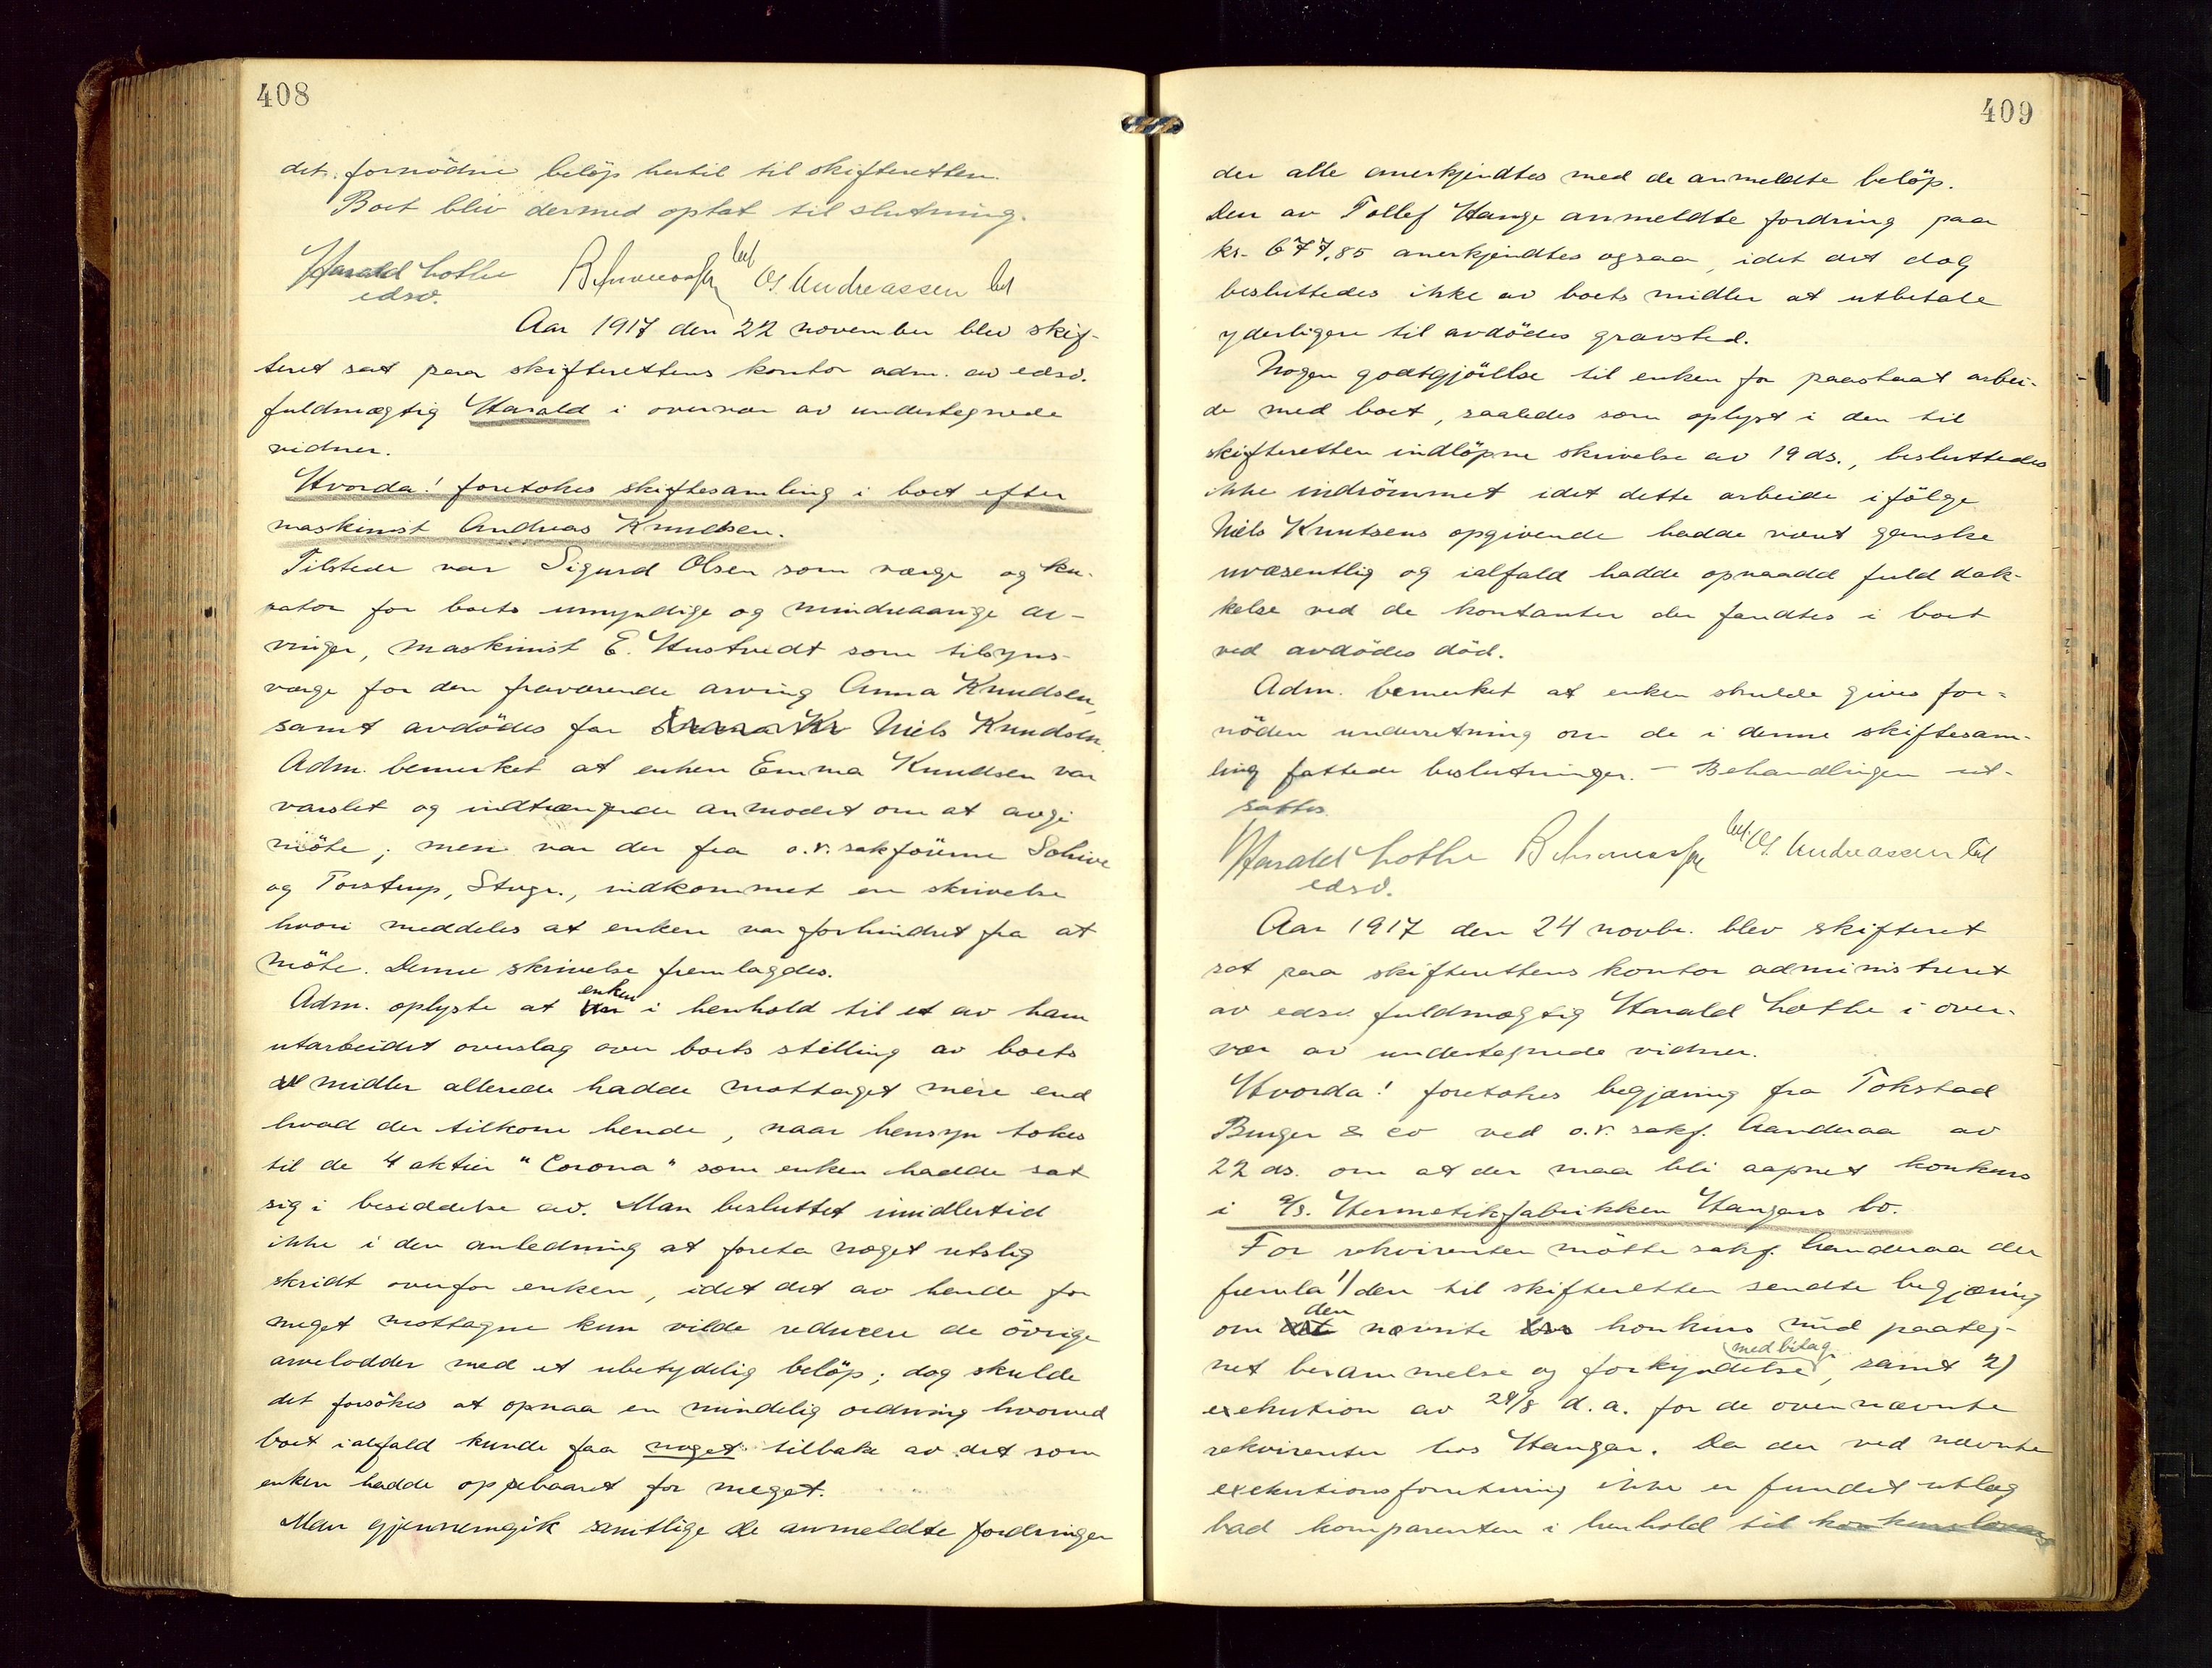 408
det fornödne belöp hertil til skifteretten.
Boet blev dermed optat til slutning.
Harald Lothe
edsv.
Os. Andreassen
Aar 1917 den 22 november blev skif-
teret sat paa skifterettens kontor adm. av edsv.
fuldmægtig Harald i overvær av undertegnede
vidner.
Hvorda! foretokes skiftesamling i boet efter
maskinist Andreas Knudsen.
Tilstede var Sigurd Olsen som værge og ku-
rator for boets umyndige og mindreaarige ar-
vinger, maskinist E. Hustvedt som tilsyns-
værge for den fraværende arving Anna Knudsen,
samt avdödes far Niels Knudsen.
Adm. bemerket at enken Emma Knudsen var
varslet og indtrængende anmodet om at avgi
möte; men var der fra o.r. sakförerne Schive
og Torstrup, Stvgr., indkommet en skrivelse
hvori meddeles at enken var forhindret fra at
möte. Denne skrivelse fremlagdes.
Adm. oplyste at enken i henhold til et av ham
utarbeidet overslag over boets stilling av boets
midler allerede hadde mottaget mere end
hvad der tilkom hende, naar hensyn tokes
til de 4 aktier "Corona" som enken hadde sat
sig i besiddelse av. Man besluttet imidlertid
ikke i den anledning at foreta noget retslig
skridt overfor enken, idet det av hende for
meget mottagne kun vilde reducere de övrige
arvelodder med et ubetydelig belöp; dog skulde
det forsökes at opnaa en mindelig ordning hvorved
boet ialfald kunde faa noget tilbake av det som
enken hadde oppebaaret for meget.
Man gjennemgik samtlige de anmeldte fordringer
409
der alle anerkjendtes med de anmeldte belöp.
Den av Tollef Hauge anmeldte fordring paa
kr. 677,85 anerkjendtes ogsaa, idet det dog
besluttedes ikke av boets midler at utbetale
yderligere til avdödes gravsted.
Nogen godtgjörelse til enken for paastaat arbei-
de med boet, saaledes som oplyst i den til
skifteretten indlöpne skrivelse av 19 ds., besluttedes
ikke indrömmet idet dette arbeide ifölge
Niels Knutsens opgivende hadde vært ganske
uvæsentlig og ialfald hadde opnaadd fuld dæk-
kelse ved de kontanter der fandtes i boet
ved avdödes död.
Adm. bemerket at enken skulde gives for-
nöden underretning om de i denne skiftesam-
ling fattede beslutninger. - Behandlingen ut-
sattes.
Harald Lothe
edsv.
Os. Andreassen
Aar 1917 den 24 novbr. blev skifteret
sat paa skifterettens kontor administreret
av edsv. fuldmægtig Harald Lothe i over-
vær av undertegnede vidner.
Hvorda! foretokes begjæring fra Tokstad
Burger & Co ved o.r. sakf. Aanderaa av
22 ds. om at der maa bli aapnet konkurs
i a/s. Hermetikfabrikken Hangars bo.
For rekvirenten mötte sakf. Aanderaa der
fremla 1) den til skifteretten sendte begjæring
om den nævnte konkurs med paateg-
net berammelse og forkyndelse med bilag, samt 2)
exekution av 28/8 d.a. for de overnævnte
rekvirenter hos Hangar. Da der ved nævnte
exekutionsforretning ikke er fundet utlæg
bad komparenten i henhold til konkursloven